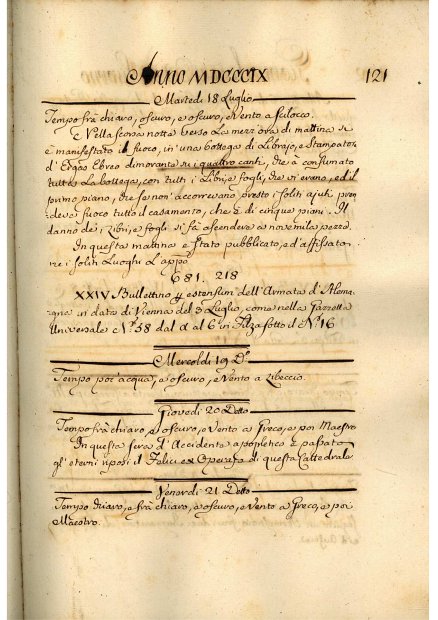 Anno MDCCCIX 121
Martedi 18 Luglio
Tempo frà chiaro, oscuro, e oscuro, e Vento a Scilocco.
E Nella scorsa notta verso La mezz'ora di mattina si
è manifestato il fuoco, in una bottega di Librajo, e Stampatore
d' Ebreo dimorante su i quattro canti, che à consumato
tutta La bottega, con tutti i Libri, e fogli, che vi erano, ed il
primo piano, che se non accorrevano presto i soliti ajuti pren
deva fuoco tutto il casamento, che è di cinque piani. Il
danno de i Libri, e fogli si fà ascendere a novemila pezze.
In questa mattina è stato pubblicato, ed affissato
ne i soliti Luoghi L'appo
681. 218
XXIV Bullettino estensum dell'Armata d'Alema
gna in data di Vienna del 3 Luglio, come nella Gazzetta
Universale N.º 58 dal a 6 in Filza sotto il N.º 16
Mercoldi 19 D.º
Tempo poc'acqua, e oscuro, e Vento a Libeccio.
Giovedi 20 Detto
Tempo frà chiaro, e oscuro, e Vento a Greco, e poi Maestro
In questa sera d'Accidente apopletico è passato
gl'eterni riposi il Felici ex Operajo di questa Cattedrale.
Venerdi 21 Detto
Tempo chiaro, e frà chiaro, e oscuro, e Vento a Greco, e poi
Maestro.